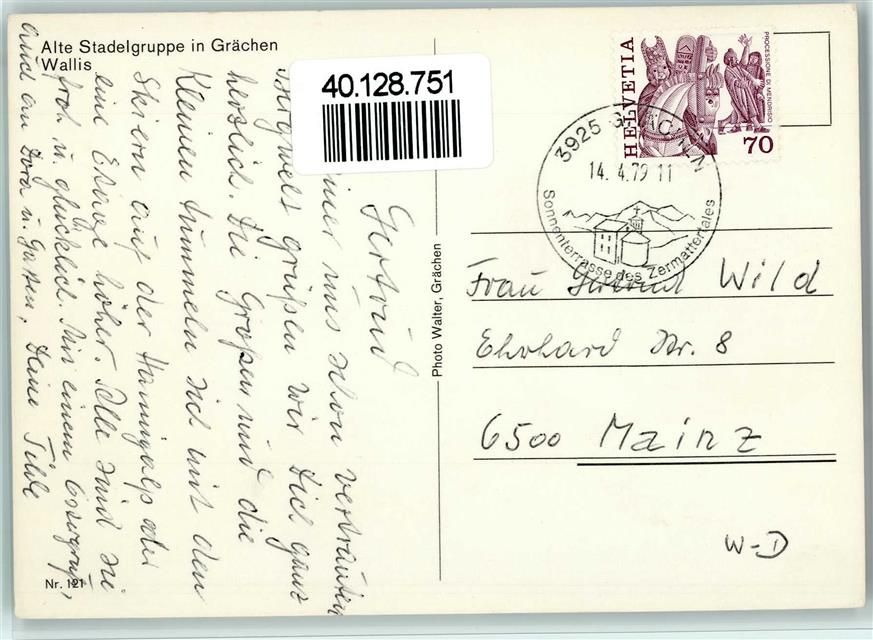 Alte Stadelgruppe in Grächen
Wallis
40.128.751
HELVETIA
PROCESSIONE DI MENDRISIO
70
3925 GRÄCHEN
14.4.79 11
Sonnenterrasse des Zermattertales
Gertrud
uns schon vertrauten
Bergwelt grüßen wir Dich ganz
herzlich. Die Großen und die
Kleinen tummeln sich mit den
Skiern auf der Hannigalp oder
eine Etage höher. Alle sind sie
froh u. glücklich. Mit einem Ostergruß,
auch an Dora u. Gustav, Deine Tilde
Photo Walter, Grächen
Frau Gertrud Wild
Ehrhard Str. 8
6500 Mainz
W-D
Nr. 121